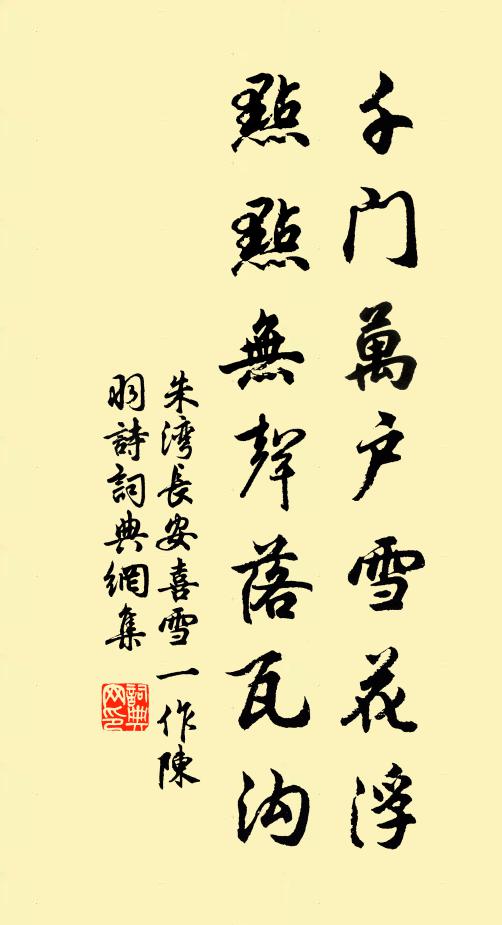 千门萬户雪花浮
點點無聲落瓦沟
朱湾長安喜雪一作陳
羽詩詞典網集
詞典
网印